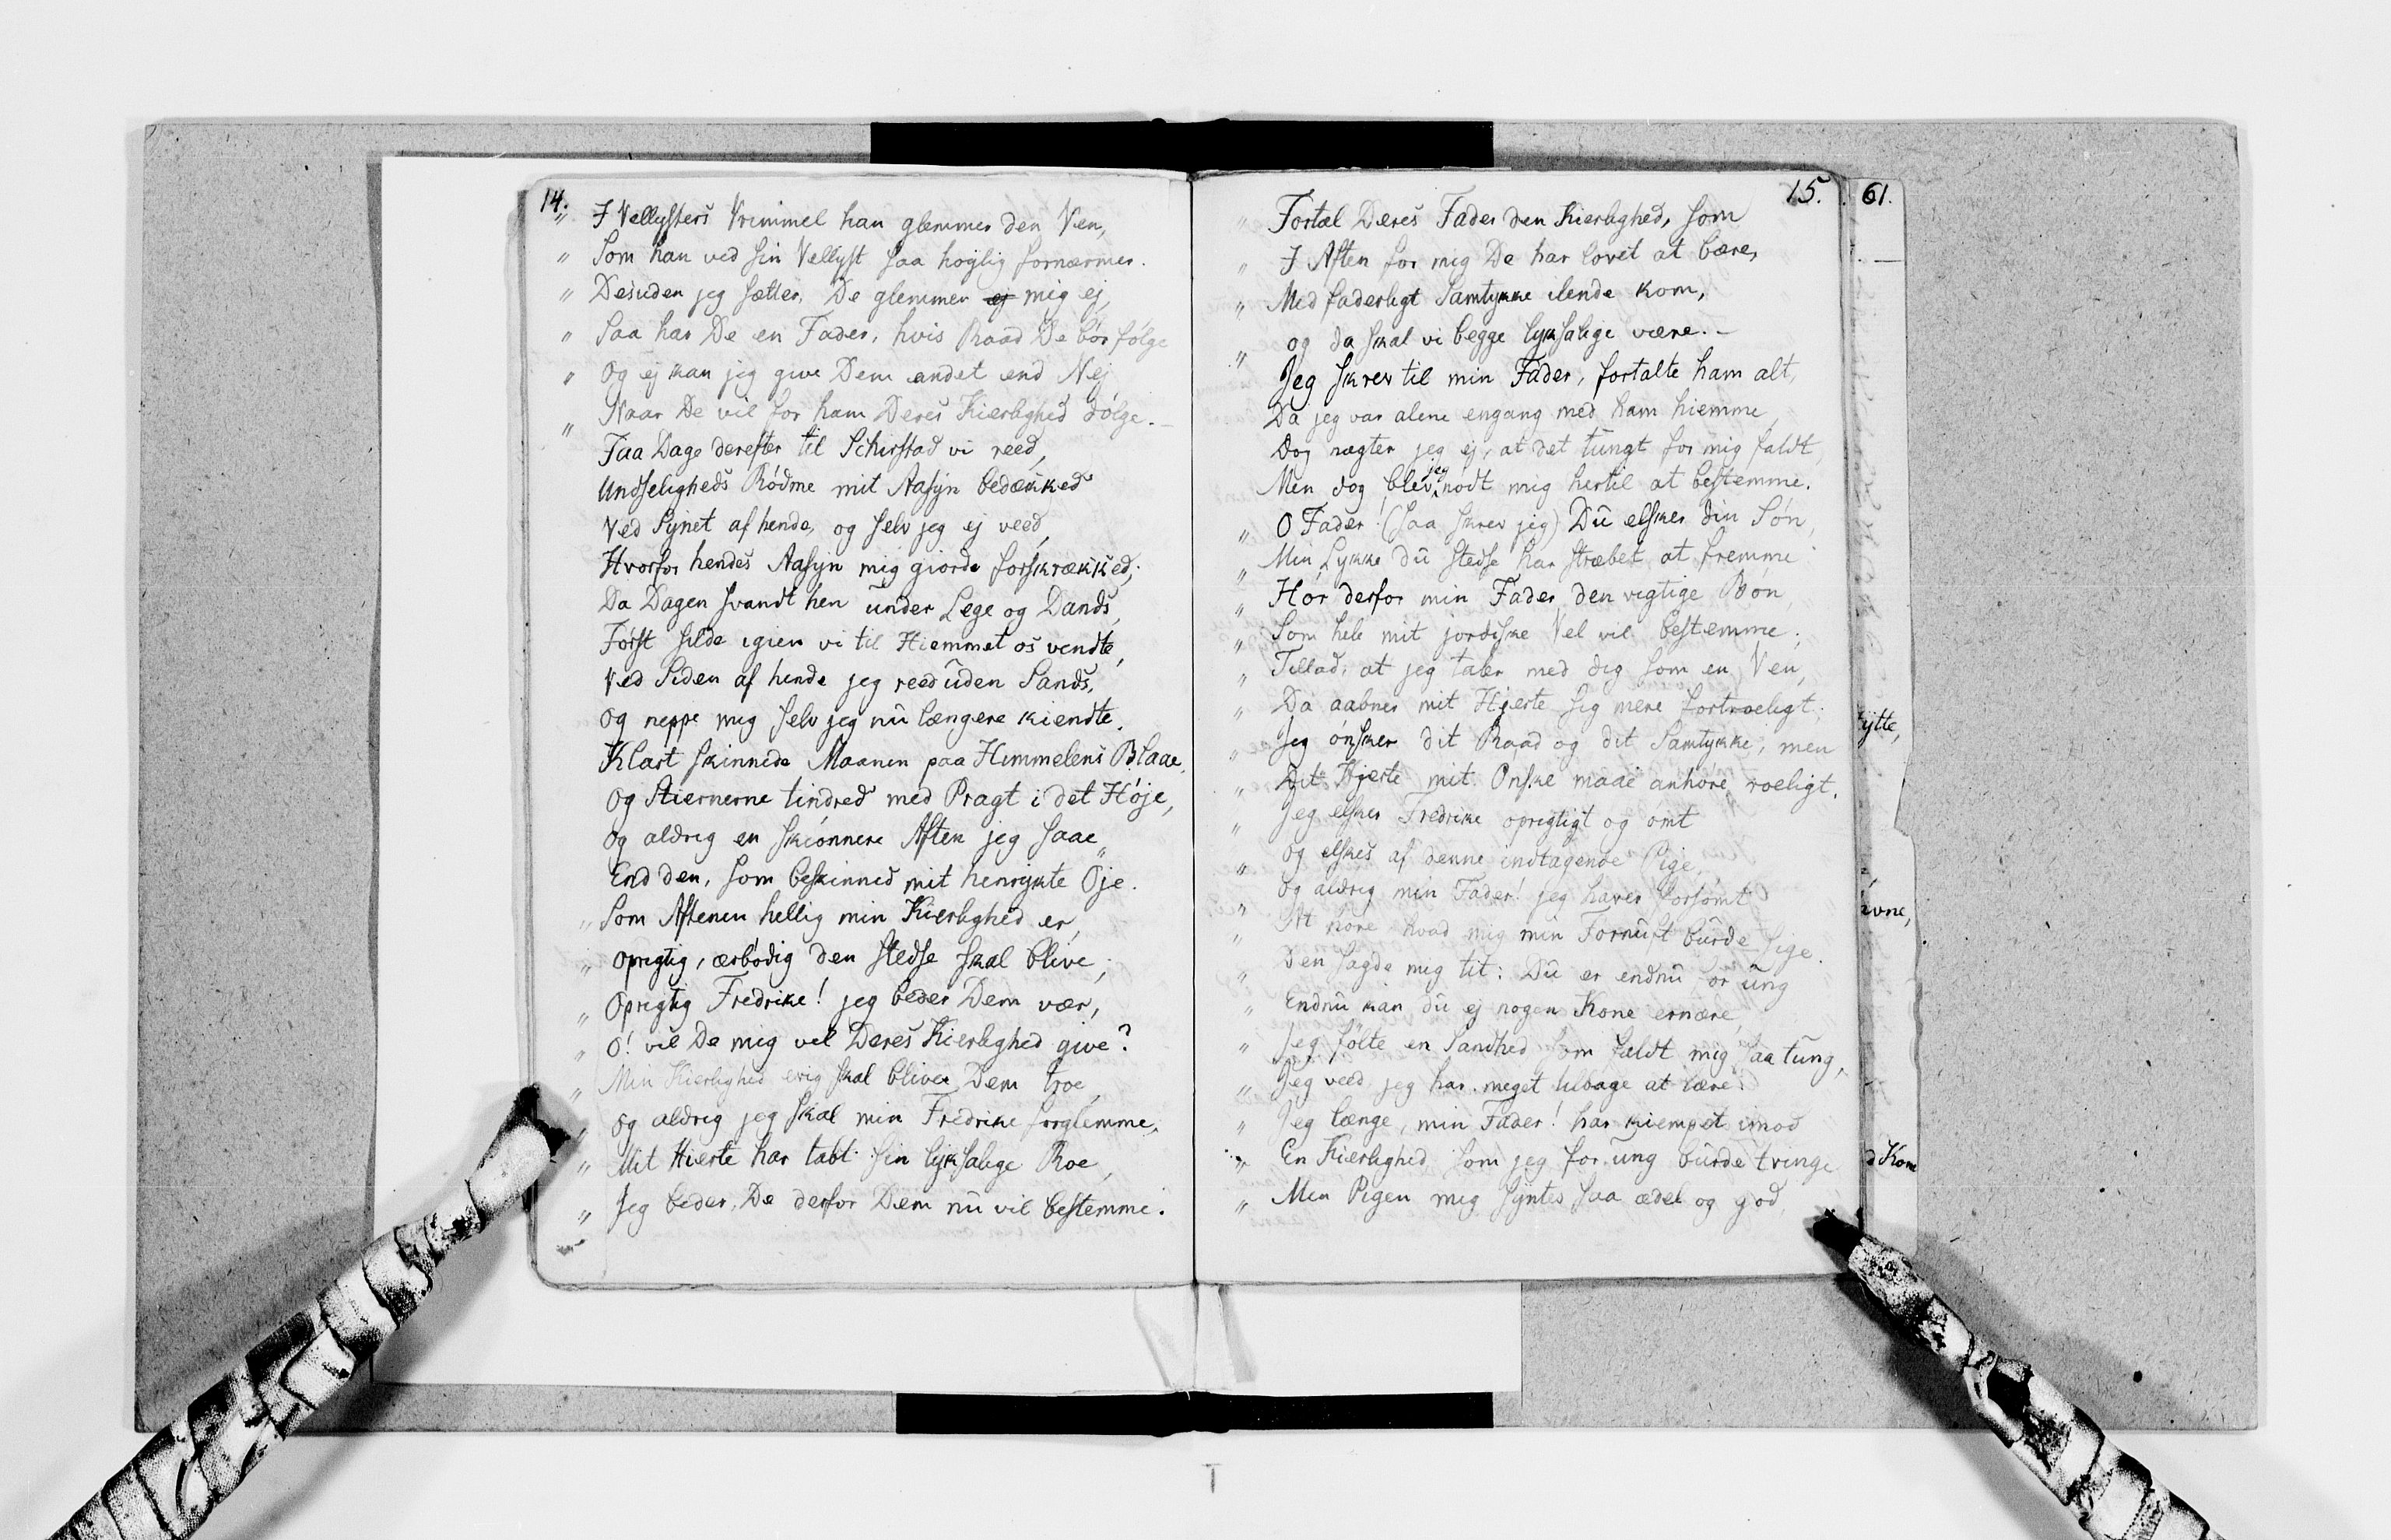 14.
" I Vellysters Vrimmel han glemmer den Ven,
" Som han ved sin Vellyst saa høylig fornærmer.
" Desuden jeg sætter, De glemmer ej mig ej,
" Saa har De en Fader, hvis Raad De bør følge
" Og ej kan jeg give Dem andet end Nej
" Naar De vil for ham Deres Kierlighed dølge. _
Faa Dage derefter til Schirstad vi reed,
Undseligheds Rødme mit Aasyn bedækked
Ved Synet af hende, og selv jeg ej veed,
Hvorfor hendes Aasyn mig giorde forskrækked;
Da Dagen svandt hen under Lege og Dands,
Først silde igien vi til Hiemmet os vendte,
Ved Siden af hende jeg reed uden Sands,
Og neppe mig selv jeg nu længere kiendte.
Klart skinnede Maanen paa Himmelens Blaae,
Og Stiernerne tindred med Pragt i det Høje,
Og aldrig en skiønnere Aften jeg saae
End den, som beskinned mit henrykte Øje.
" Som Aftenen hellig min Kierlighed er,
" Oprigtig, ærbødig den stedse skal blive;
" Oprigtig Fredrike! jeg beder Dem vær,
" O! vil De mig vel Deres Kierlighed give?
" Min Kierlighed evig skal blive Dem troe,
" Og aldrig jeg skal min Fredrike forglemme,
" Mit Hierte har tabt sin lyksalige Roe,
" Jeg beder, De derfor Dem nu vil bestemme.
15.
" Fortæl Deres Fader den Kierlighed, som
" I Aften for mig De har lovet at bære,
" Med faderligt Samtykke ilende kom,
" og da skal vi begge lyksalige være. _
Jeg skrev til min Fader, fortalte ham alt,
Da jeg var alene engang med ham hiemme,
Dog nægter jeg ej, at det tungt for mig faldt,
Men dog blev jeg nødt mig hertil at bestemme.
" O Fader! (saa skrev jeg) Du elsker din Søn,
" Min Lykke du stedse har stræbet at fremme
" Hør derfor min Fader den vigtige Bøn,
" Som hele mit jordiske Vel vil bestemme;
" Tillad, at jeg taler med dig som en Ven,
" Da aabner mit Hjerte sig mere fortroeligt;
" Jeg ønsker dit Raad og dit Samtykke, men
" Dit Hjerte mit Ønske maae anhøre roeligt.
" Jeg elsker Fredrike oprigtigt og ømt
" Og elskes af denne indtagende Pige,
" Og aldrig min Fader! jeg haver forsømt
" At høre hvad mig min Fornuft burde sige.
" Den sagde mig tit: Du er endnu for ung
" Endnu kan du ej nogen Kone ernære,
" Jeg følte en Sandhed som faldt mig saa tung,
" Jeg veed, jeg har meget tilbage at lære.
" Jeg længe, min Fader! har kiempet imod
" En Kierlighed som jeg for ung burde tvinge
" Men Pigen mig syntes saa ædel og god,
61.
ytte,
evne,
d Kone